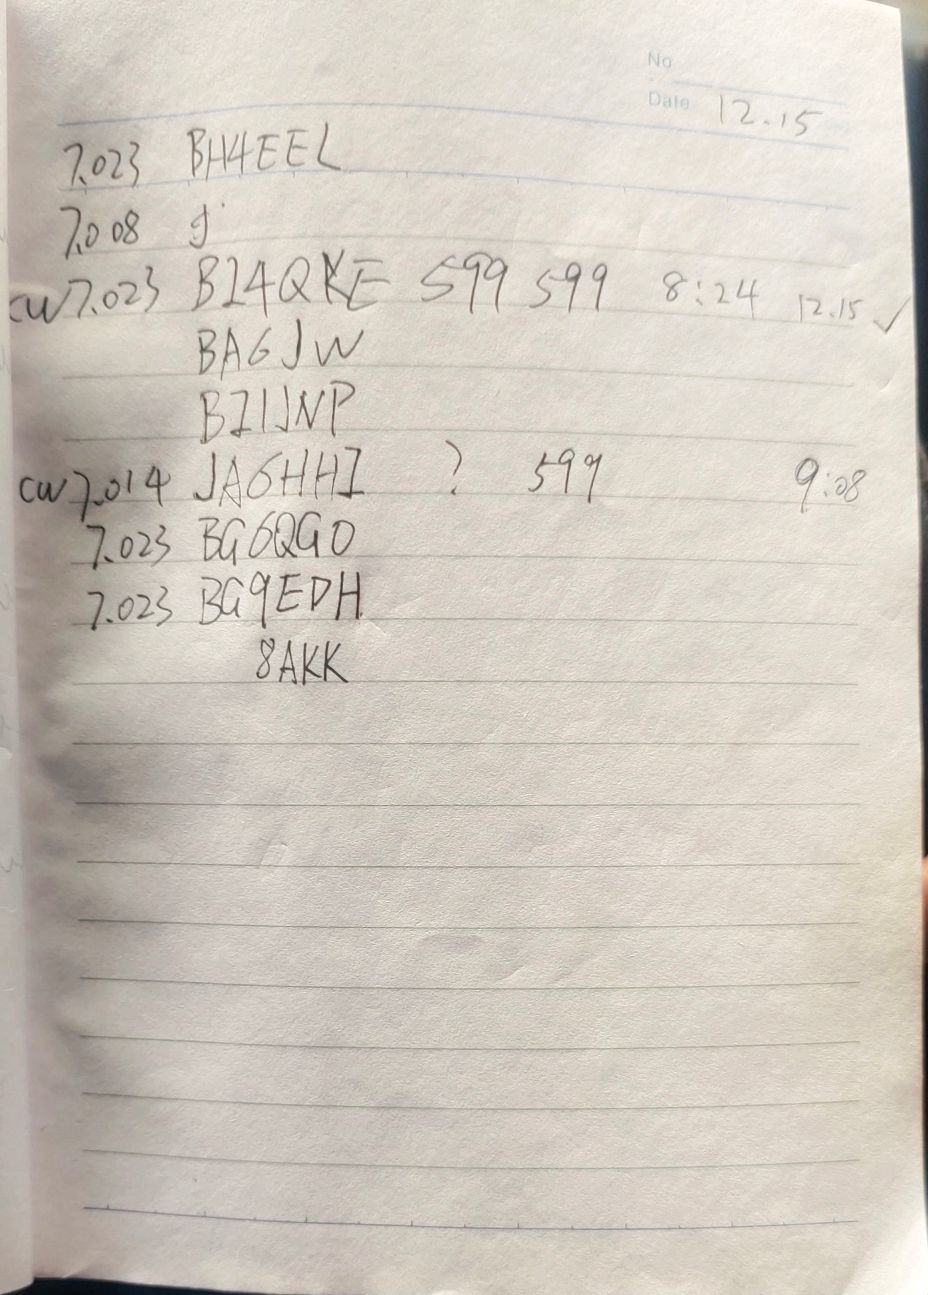 No
Date 12.15
7.023 BH4EEL
7.008
CW 7.023 BI4QKE 599 599 8:24 12.15 ✓
BA6JW
BI1JNP
CW 7.014 JA6HHI ? 599 9:08
7.023 BG6QGO
7.023 BG9EDH
8AKK